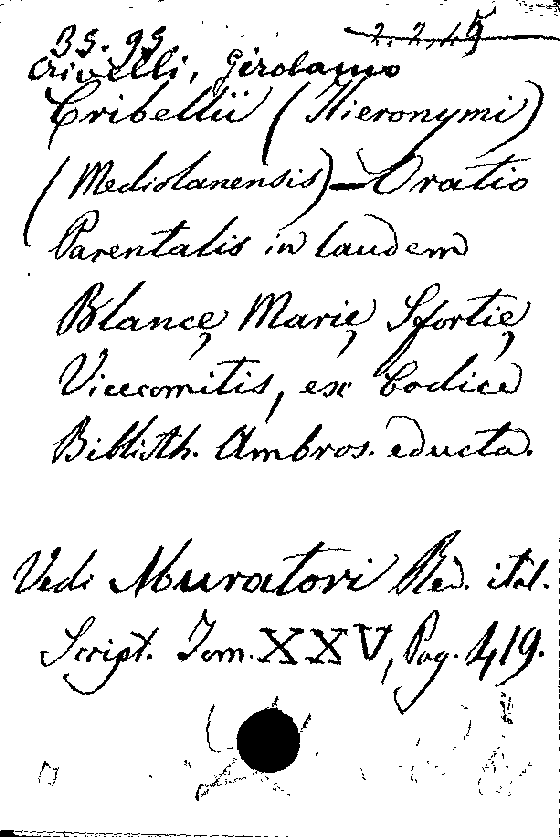 35. 95 2.2.45
Crivelli, Girolamo
Cribellii (Hieronymi)
(Mediolanensis) — Oratio
Parentalis in laudem
Blancę Marię Sfortię
Vicecomitis, ex Codice
Biblioth. Ambros. educta.
Vedi Muratori Rer. ital.
Script. Tom. XXV, Pag. 419.